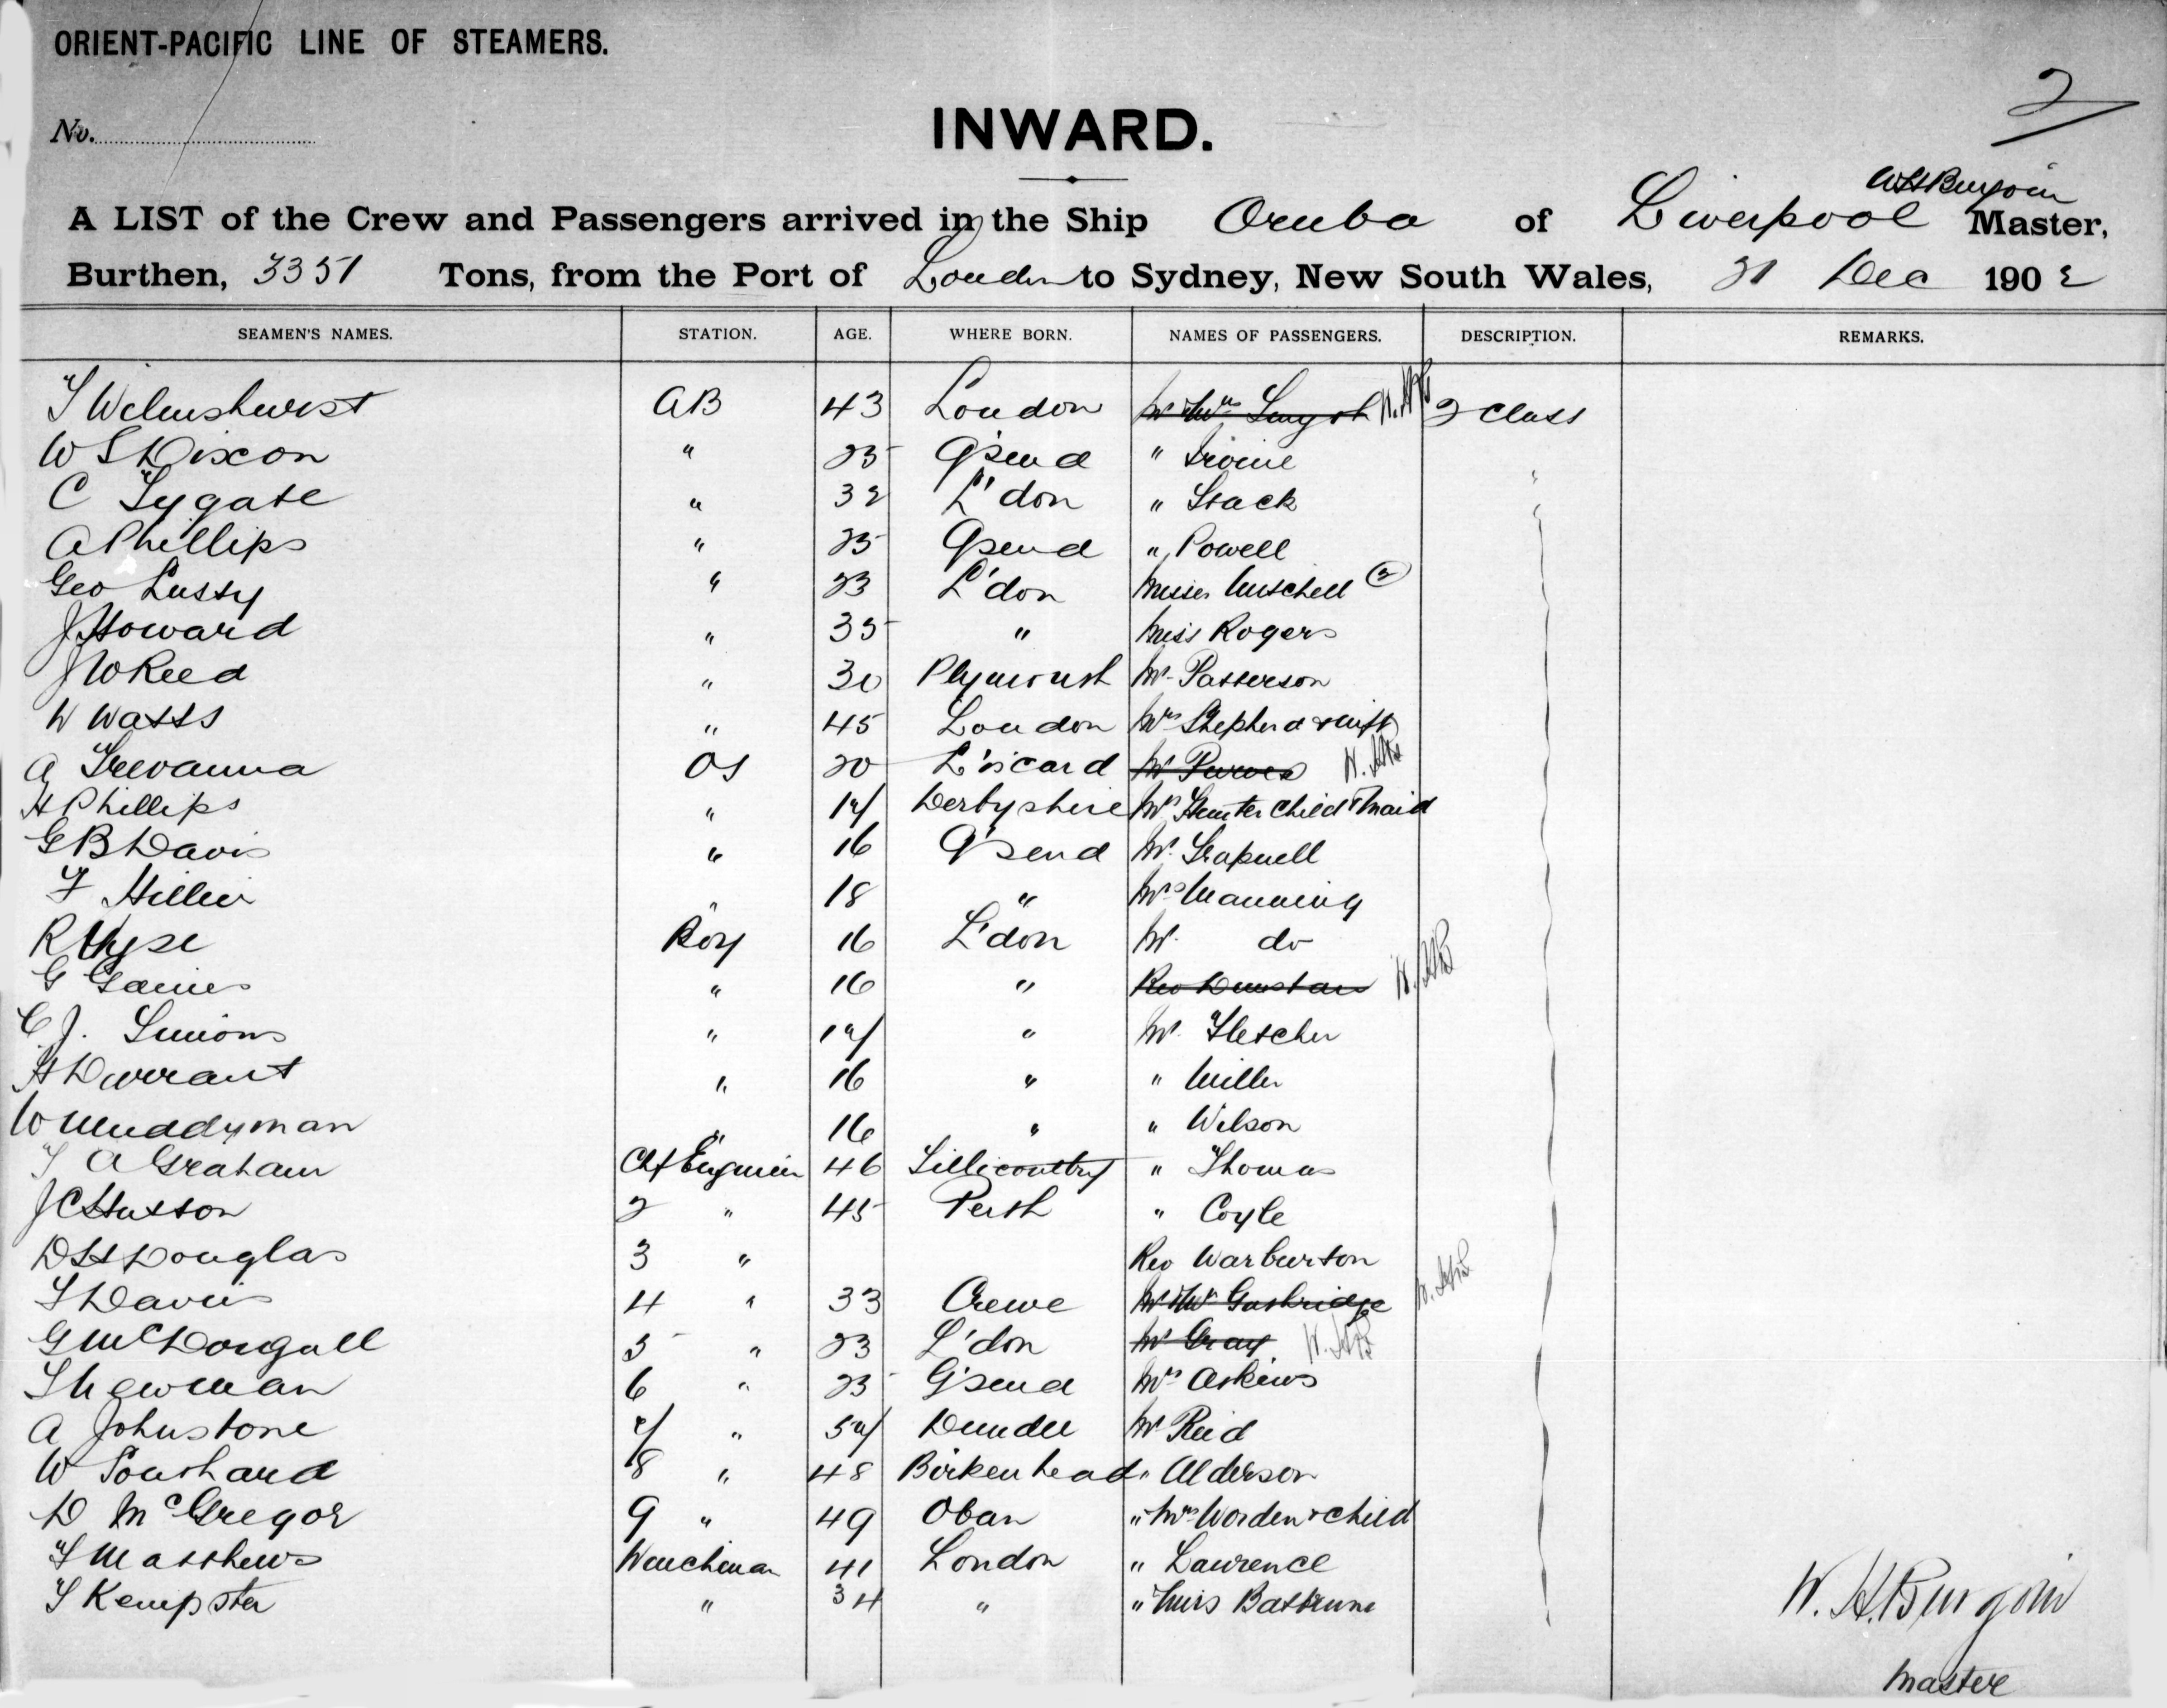 ORIENT-PACIFIC LINE OF STEAMERS.
2
No.
INWARD.
W H Burgoin
A LIST of the Crew and Passengers arrived in the Ship Oruba of Liverpool Master,
Burthen, 3351 Tons, from the Port of London to Sydney, New South Wales, 31 Dec 1902
SEAMEN'S NAMES. STATION. AGE. WHERE BORN. NAMES OF PASSENGERS. DESCRIPTION. REMARKS.
T Wilmshurst AB 43 London Mr & Mrs 2 Class
W S Dixon " 25 G'send " Irvine
C Tygate " 32 L'don " Stack
A Phillips " 25 G'send " Powell
Geo Lussy " 23 L'don Misses Mitchell (2)
J Howard " 35 " Miss Rogers
J W Reed " 30 Plymouth Mr Patterson
W Watts " 45 London Mrs Shepherd & inft
A Trevanna OS 20 L'iscard Mr Purves
H Phillips " 17 Derbyshire Mrs Hunter Child & Maid
G B Davis " 16 G'send Mr Trapnell
F Hillier " 18 " Mrs Manning
R Hyse Boy 16 L'don Mr do
G Gaines " 16 " Rev Dunstan
C J. Simons " 17 " Mr Fletcher
H Durrant " 16 " " Miller
W Muddyman " 16 " " Wilson
T A Graham Chf Engineer 46 Tillicoultry " Thomas
J C Hutton 2 " 45 Perth " Coyle
D H Douglas 3 " Rev Warburton
T Davies 4 " 33 Crewe Mr & Mrs Guthridge
G McDougall 5 " 23 L'don Mr Gray
T Newman 6 " 25 G'send Mrs Askews
A Johnstone 7 " 57 Dundee Mr Reid
W Southard 8 " 48 Birkenhead " Alderson
D McGregor 9 " 49 Oban " Mrs Worden & child
T Matthews Winchman 41 London " Lawrence
T Kempster " 34 " " Miss
W. H. Burgoin
Master